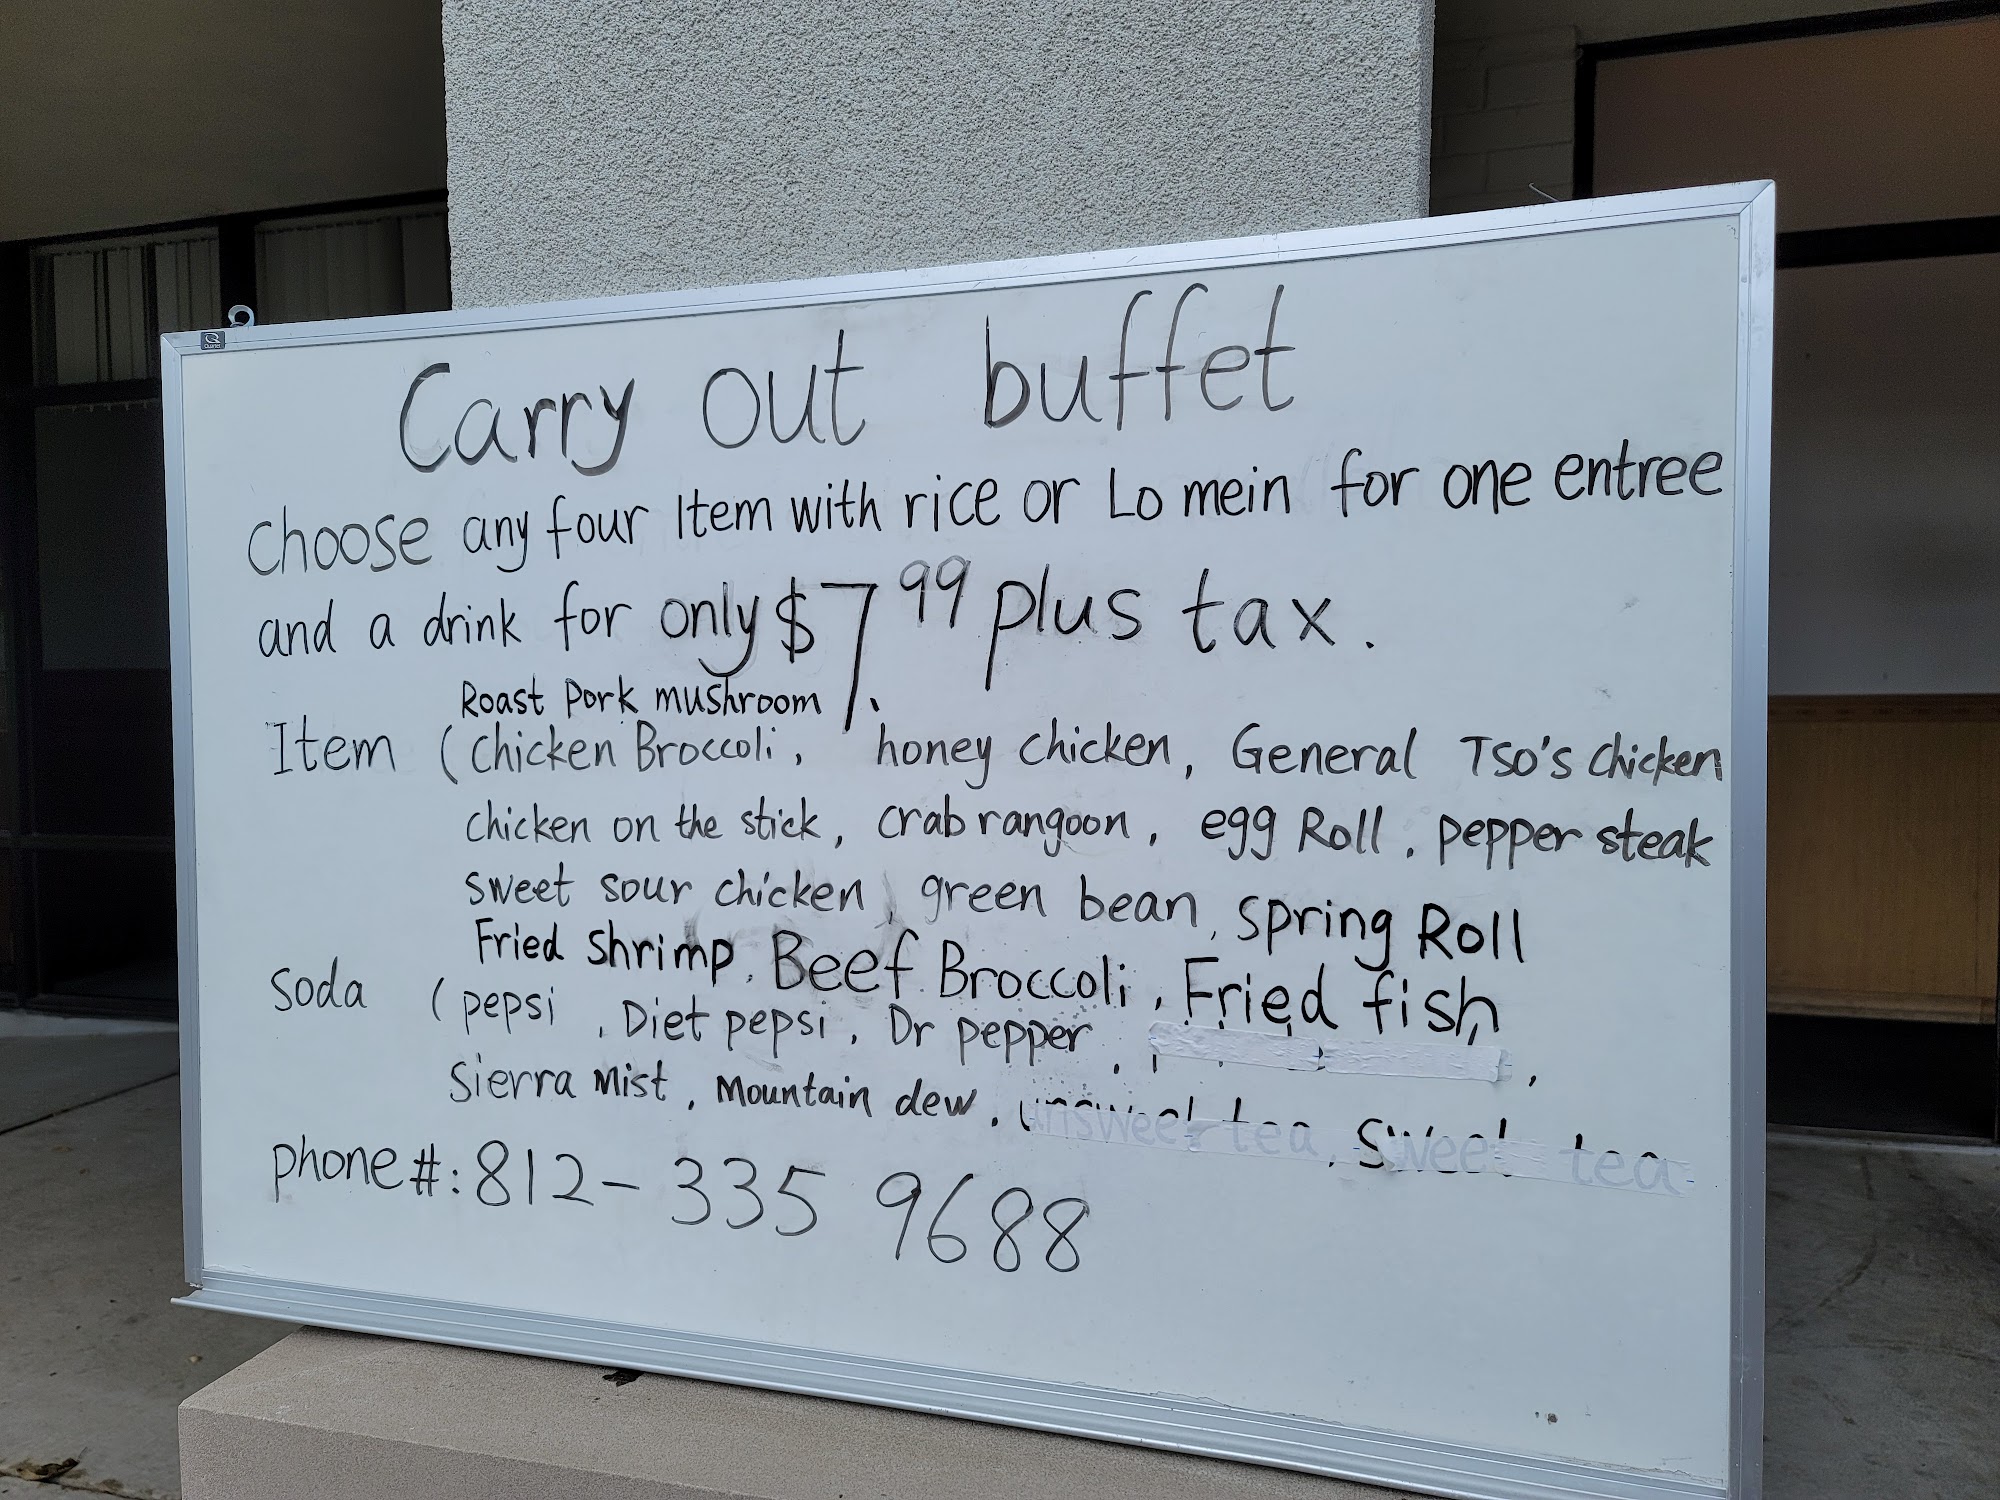 Quartet
Carry out buffet
choose any four Item with rice or Lo mein for one entree
and a drink for only $7.99 plus tax.
Roast Pork mushroom
Item (chicken Broccoli, honey chicken, General Tso's chicken
chicken on the stick, crab rangoon, egg Roll, pepper steak
sweet sour chicken, green bean, spring Roll
Fried shrimp, Beef Broccoli, Fried fish
Soda (pepsi, Diet pepsi, Dr pepper,
Sierra Mist, Mountain dew, unsweet tea, sweet tea
phone#: 812-335 9688